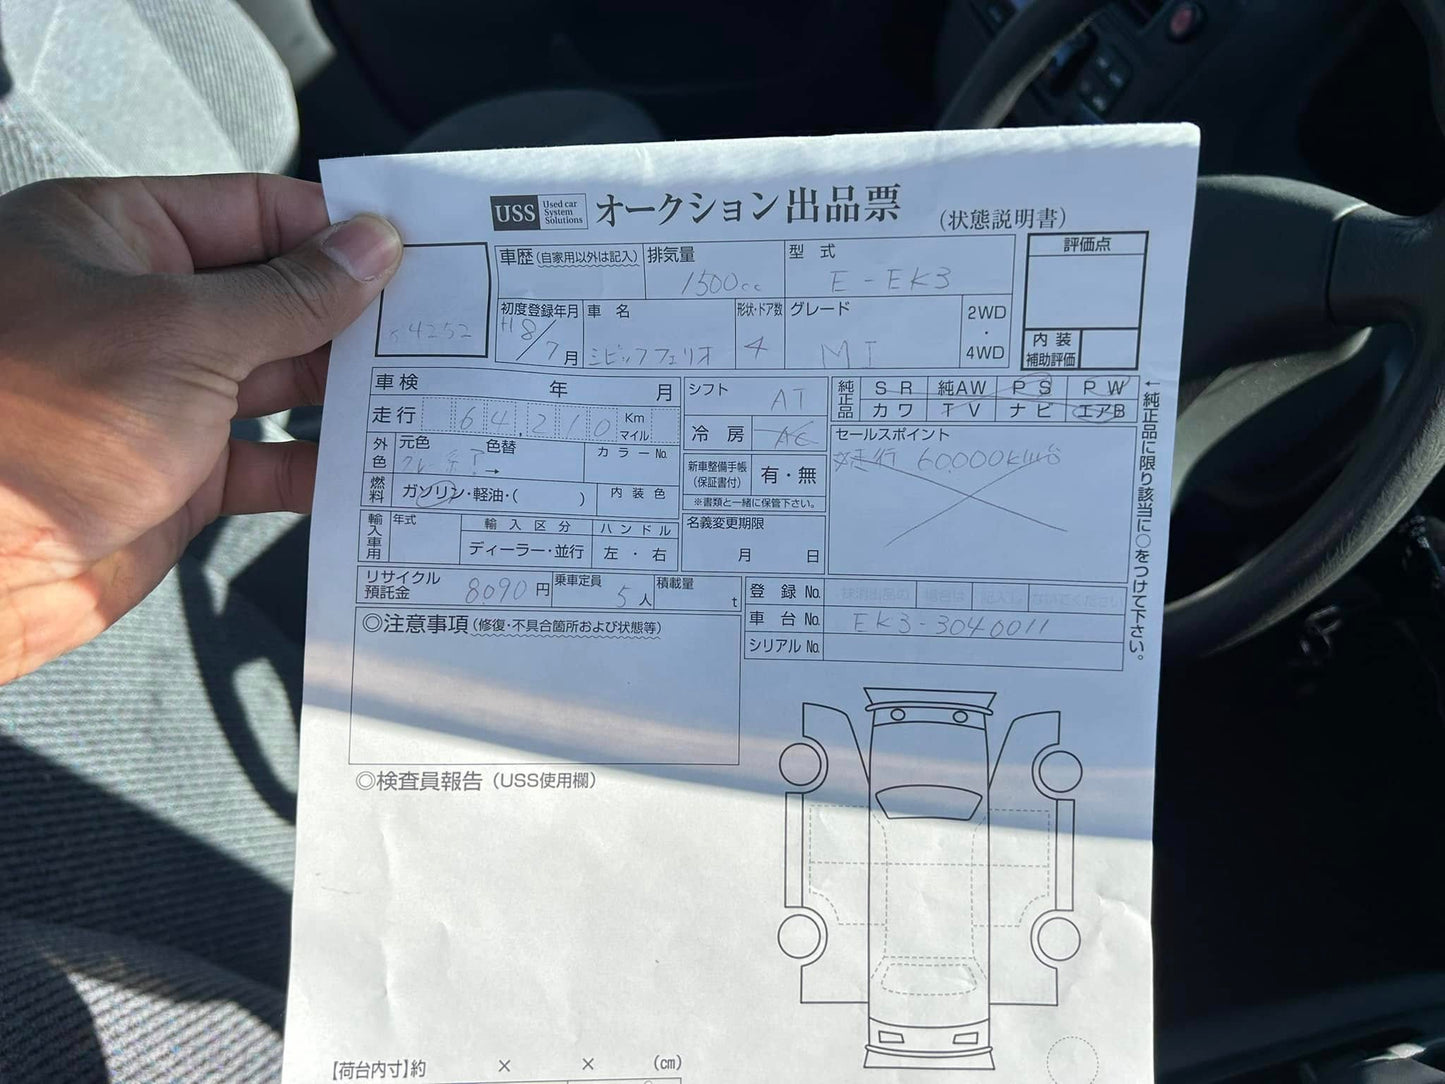 USS Used car System Solutions オークション出品票 (状態説明書)
54252
車歴(自家用以外は記入) 排気量 1500cc 型 式 E-EK3 評価点
初度登録年月 H8/7月 車 名 シビックフェリオ 形状・ドア数 4 グレード MI 2WD・4WD
内 装 補助評価
車検 年 月 シフト AT 純正品 SR 純AW PS PW
走行 64,210 Km マイル カワ TV ナビ エアB
冷 房 AC
外色 元色 色替 → カラーNo.
セールスポイント
走行 60,000km
新車整備手帳 (保証書付) 有・無
※書類と一緒に保管下さい。
燃料 ガソリン・軽油・( ) 内装色
輸入車用 年式 輸入区分 ハンドル 名義変更期限
ディーラー・並行 左・右 月 日
↑純正品に限り該当に○をつけて下さい。
リサイクル預託金 8,090円 乗車定員 5人 積載量 t 登 録 No.
車 台 No. EK3-3040011
シリアル No.
◎注意事項(修復・不具合箇所および状態等)
◎検査員報告(USS使用欄)
【荷台内寸】約 × × (cm)